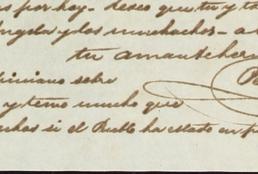 por hoy - deseo que tu y
Angela y los muchachos - a
tu amante her
sobre
y temo mucho que
si el Pueblo ha estado en